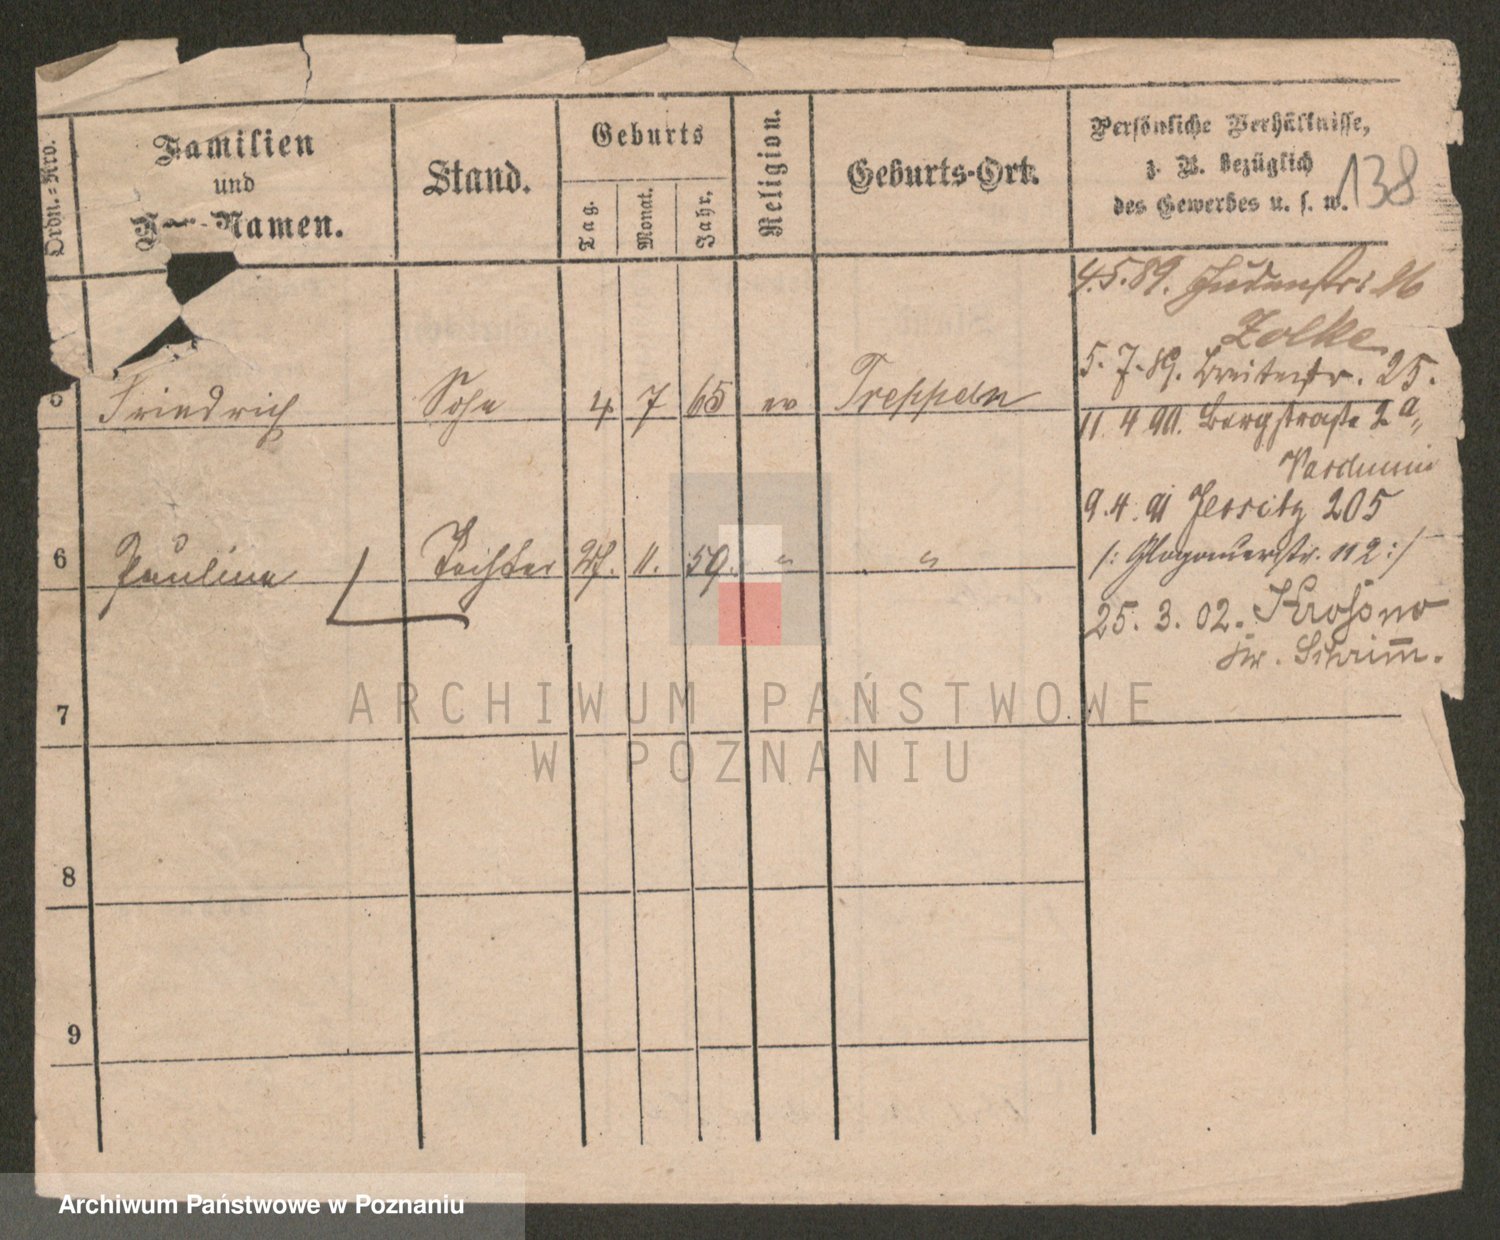 Ordn.=Nro.
Familien
und
Namen.
Stand.
Geburts
Tag.
Monat.
Jahr.
Religion.
Geburts-Ort.
Persönliche Verhältnisse,
z. B. bezüglich
des Gewerbes u. s. w.
138
4.5.89. Judenstr: 26
Zolke
5.7.89. Breitestr. 25.
5 Friedrich Sohn 4 7 65 ev Treppeln
11.4.90. Bergstraße 2a,
9.4.91 Jersitz 205
6 Pauline Tochter 27. 11. 59. " "
/: Glogauerstr. 112 :/
25.3.02. Krosno
Kr. Schrimm.
7
8
9
ARCHIWUM PAŃSTWOWE
W POZNANIU
Archiwum Państwowe w Poznaniu